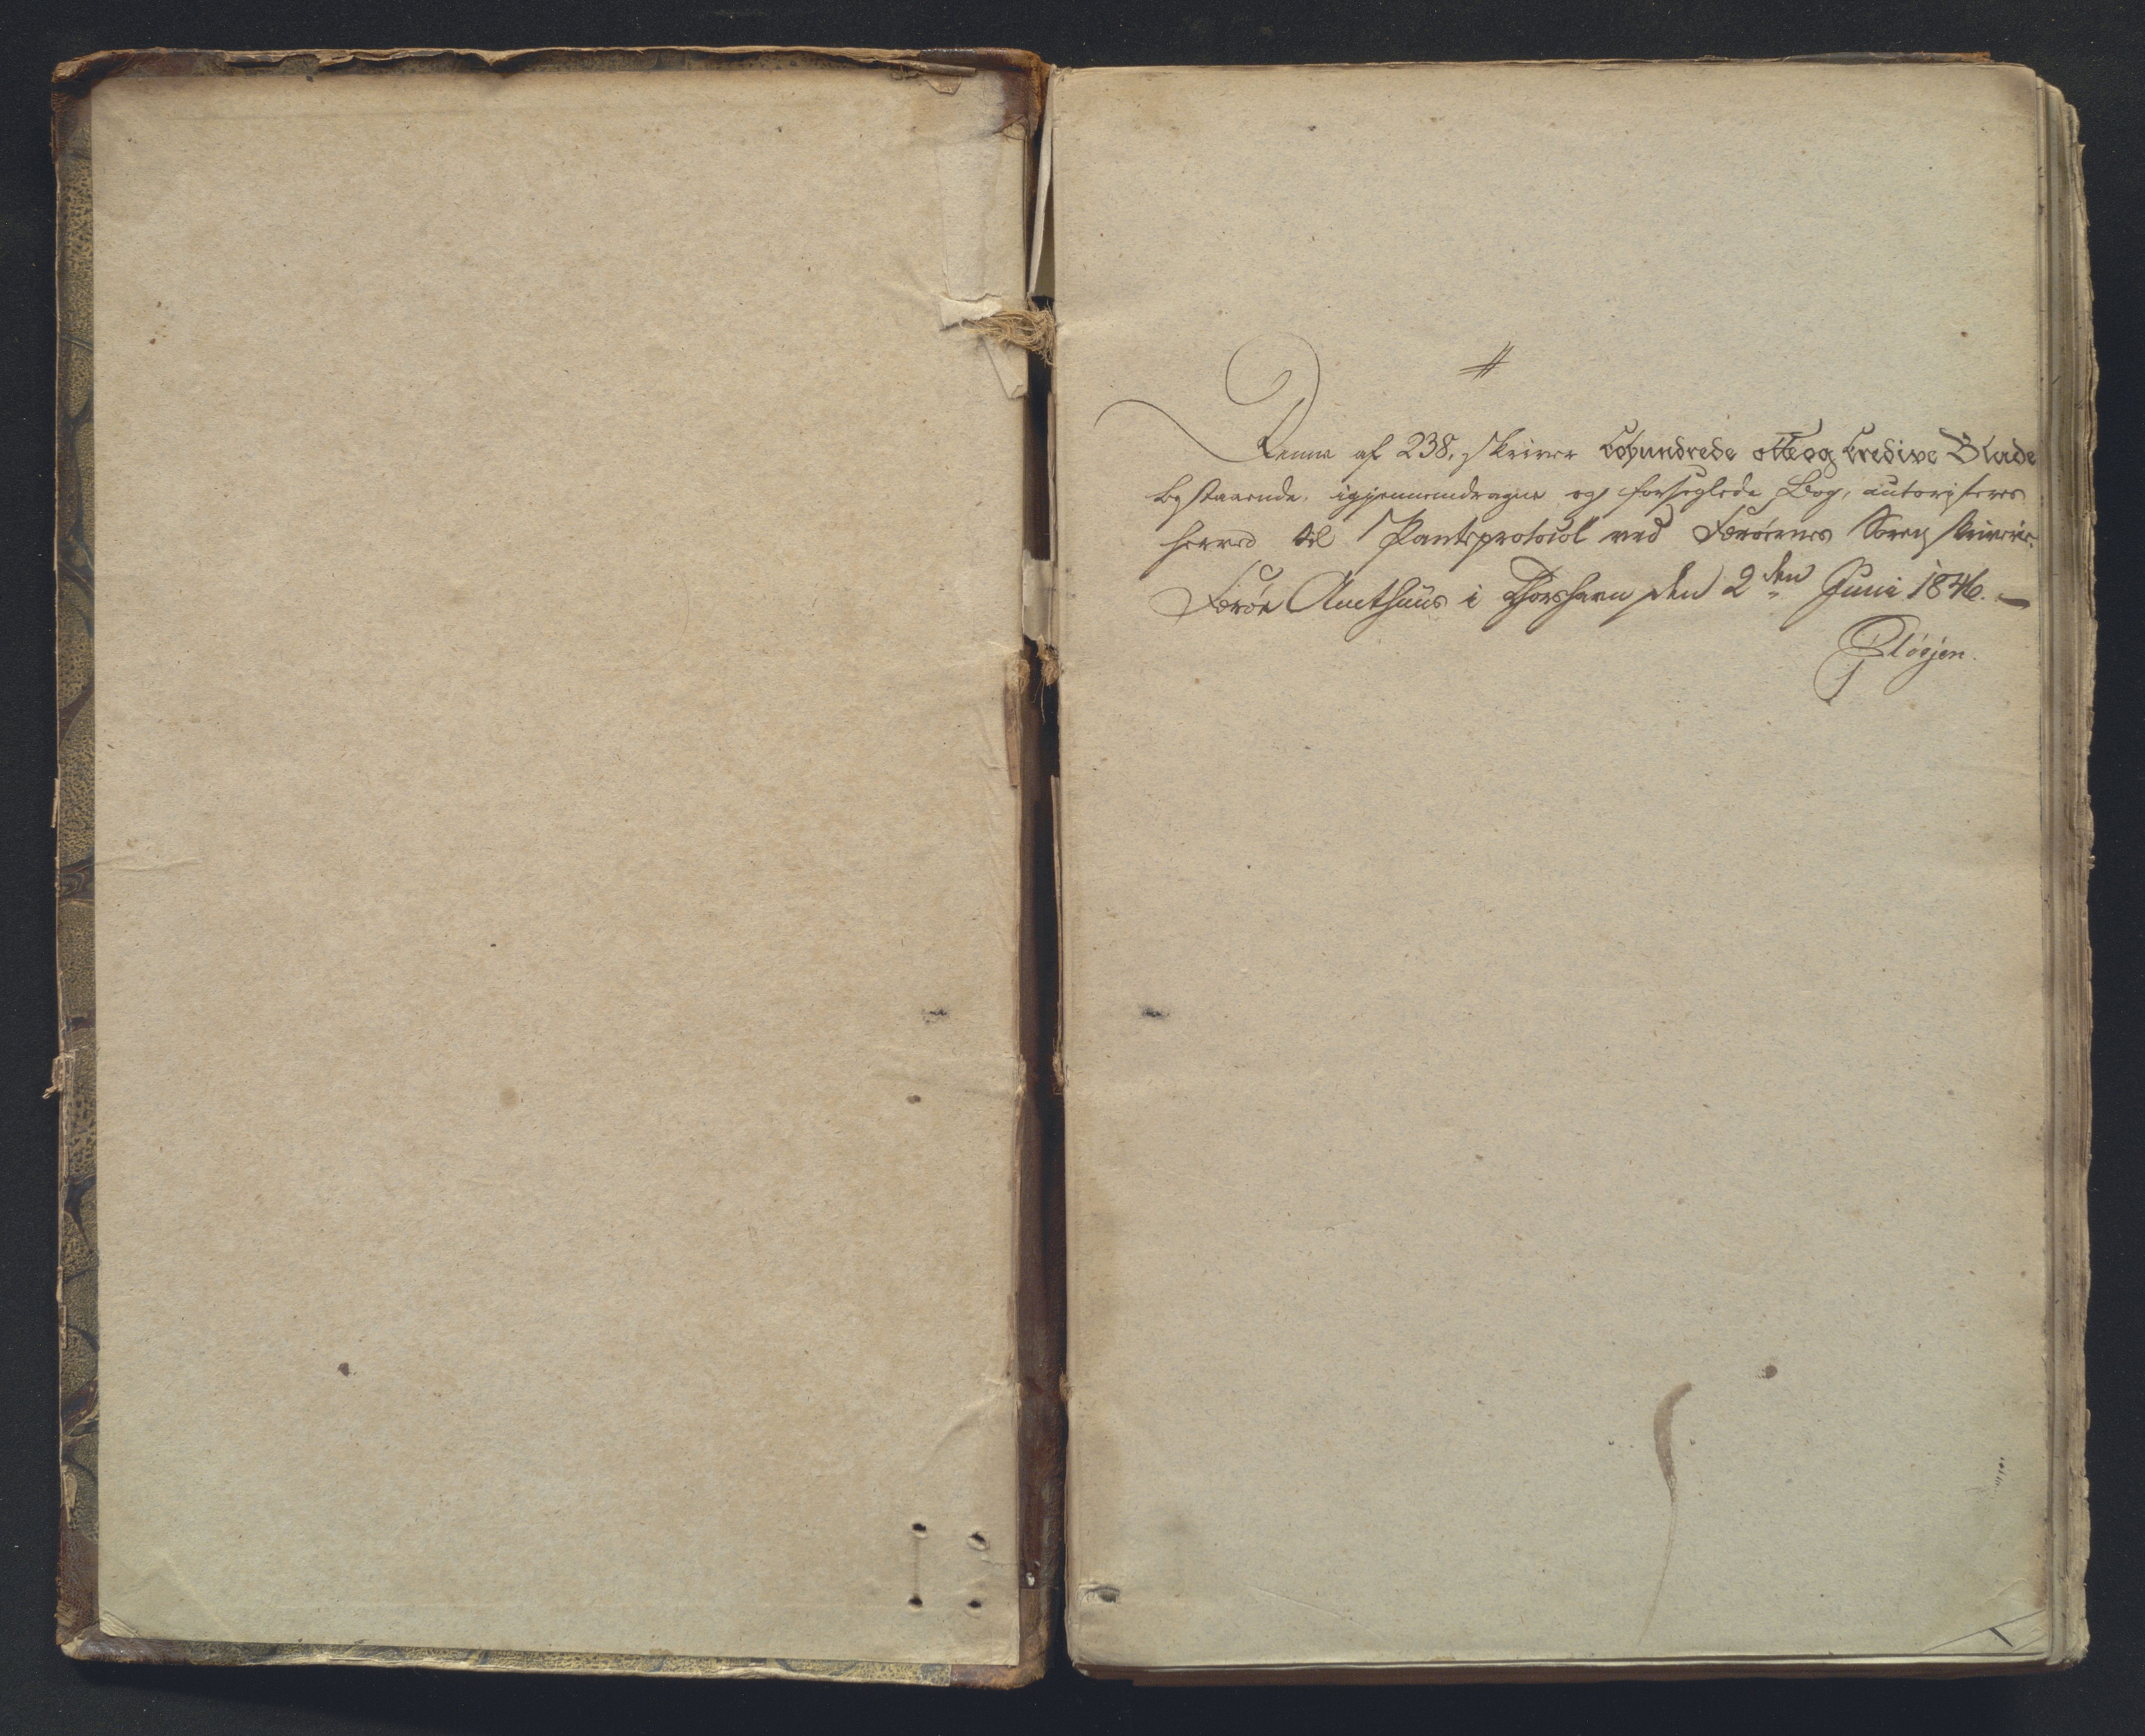 Denne af 238, skriver Tohundrede otteog tredive Blade
bestaaende, igjennemdragne og forseglede Bog, autoriseres
herved til Panteprotocol ved Færøernes Sorenskriverie.
Færøe Amthuus i Thorshavn den 2den Juni 1846.
Pløyen.